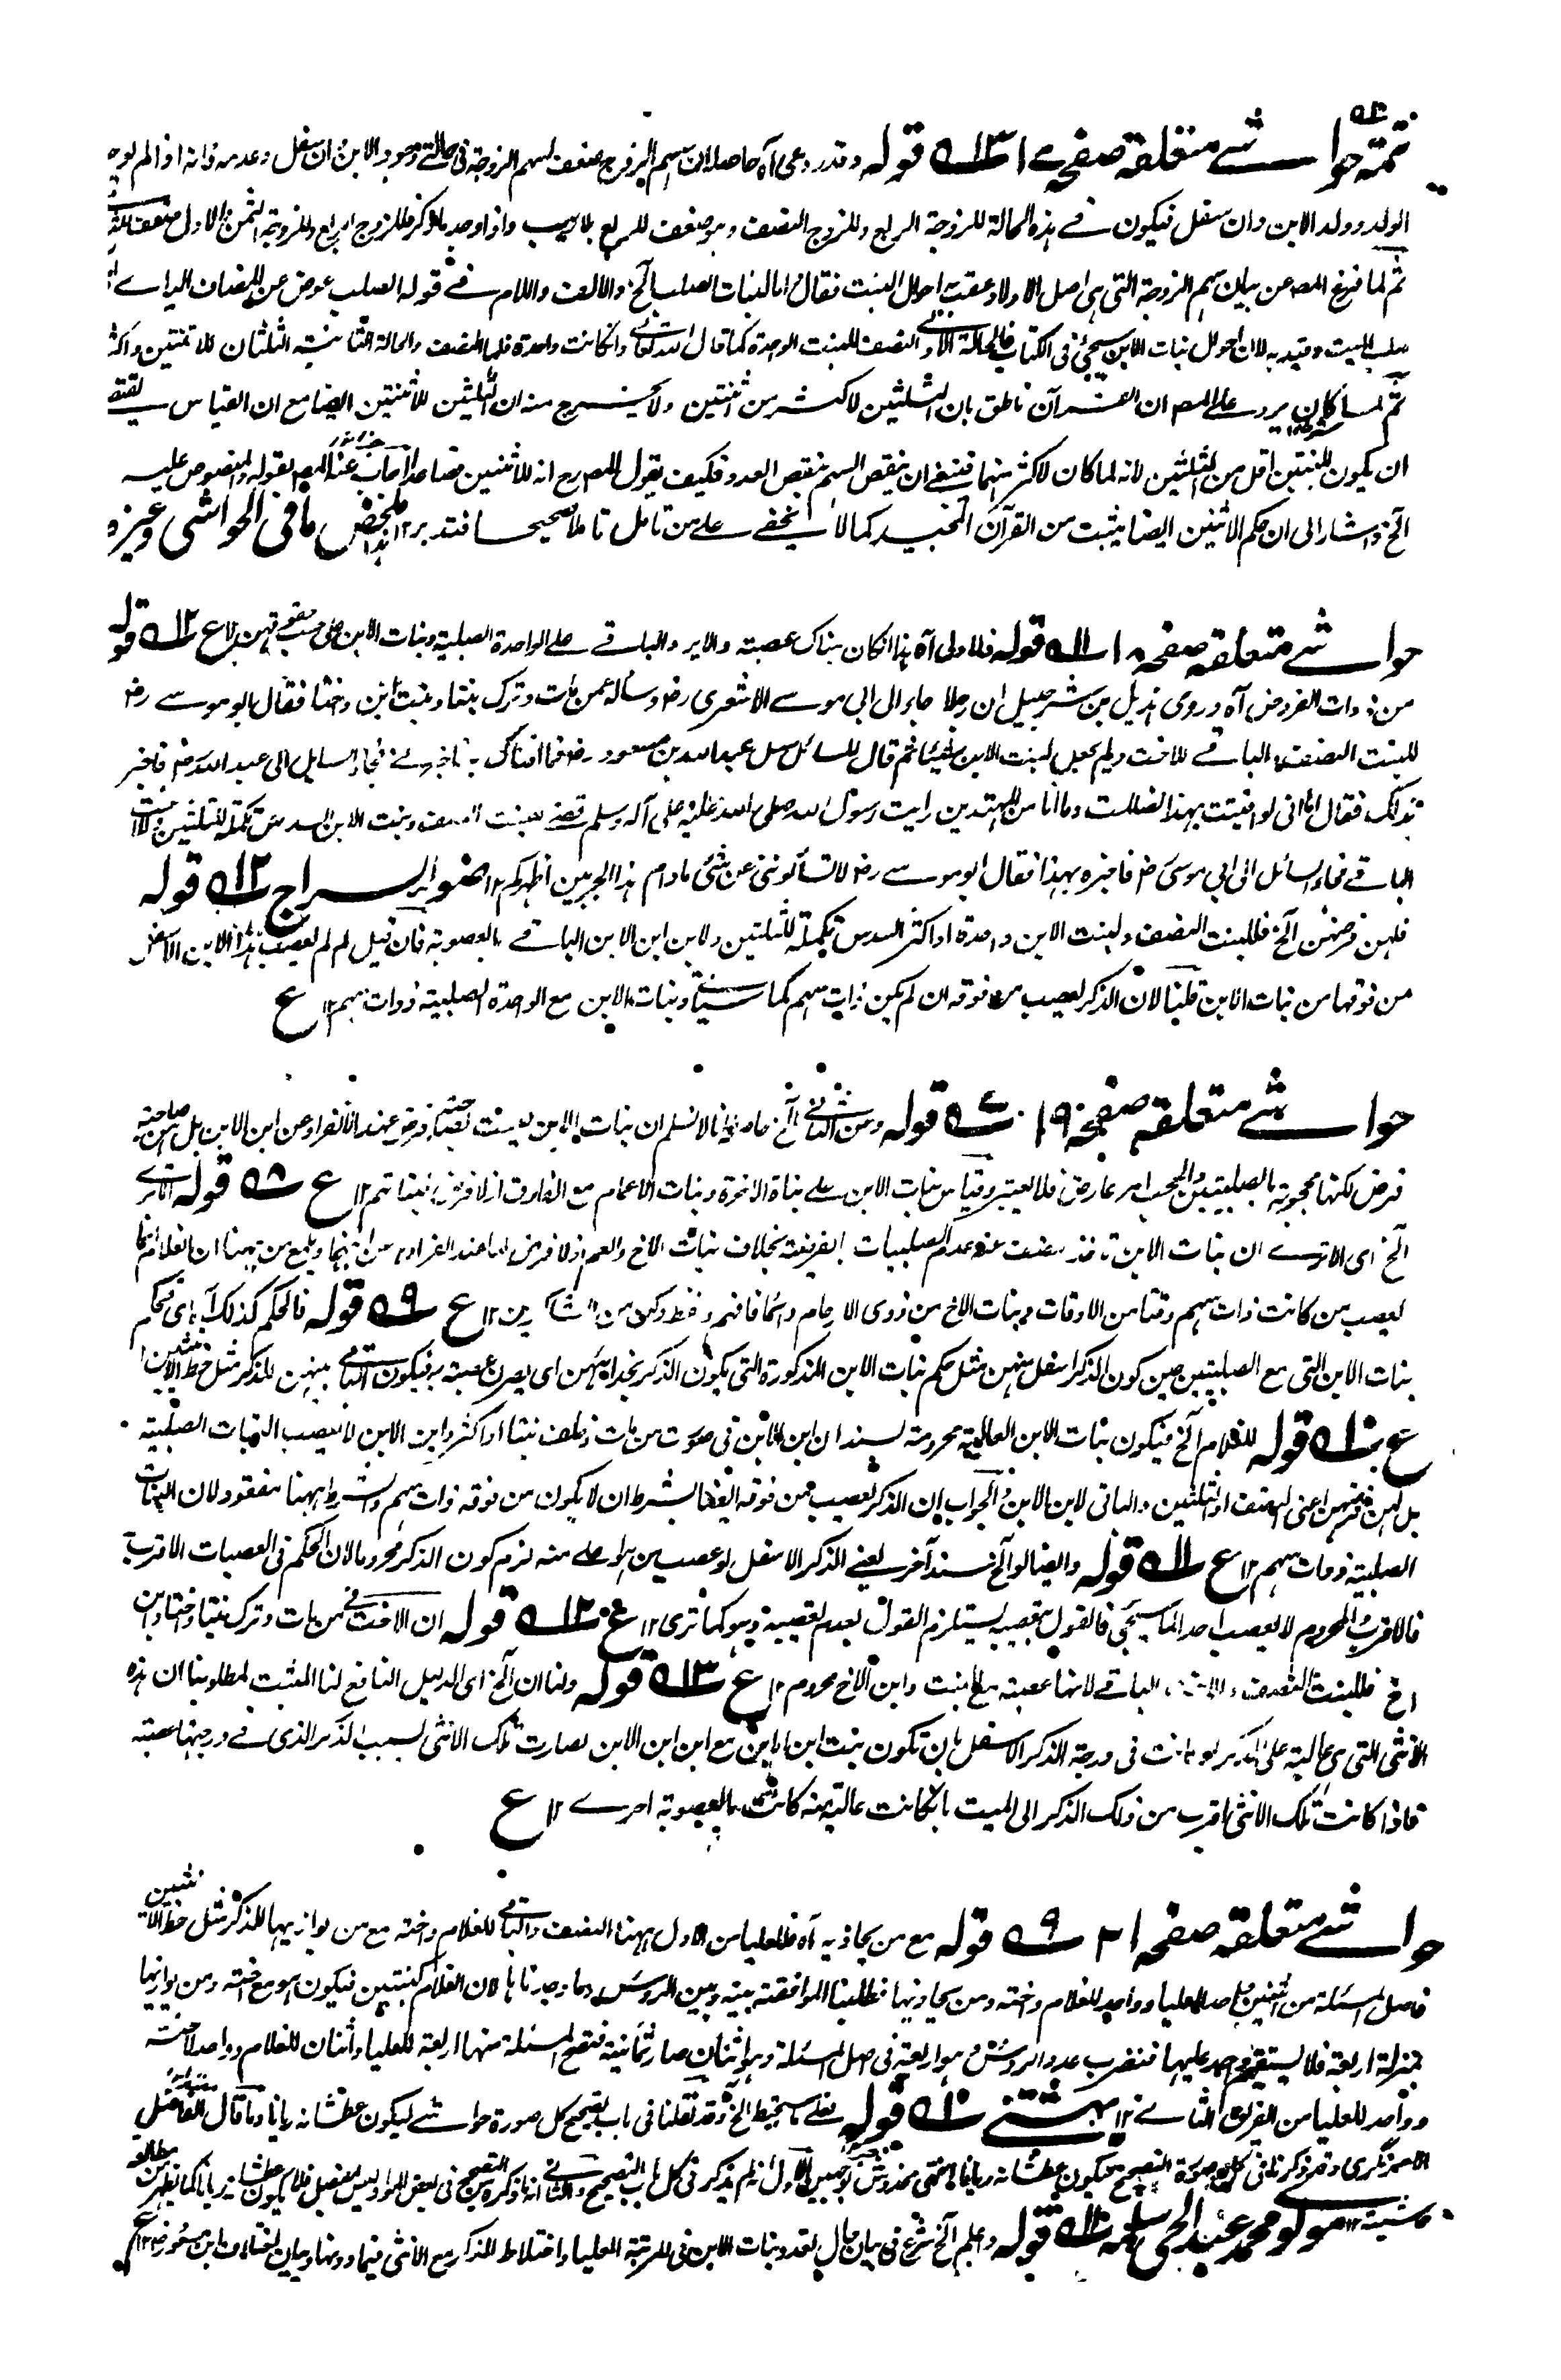 تتمه حواشے متعلقہ صفحہ ۱۷ ۱۳ قوله وقدروعى آه حاصله ان سهم الزوج ضعف لسهم الزوجة فى حالتے وجود الابن وان سفل وعدمه فانه اذا لم يوجد
الولد وولد الابن وان سفل فيكون فے هذه الحالة للزوجة الربع وللزوج النصف وهو ضعف للربع بلا ريب واذا وجد ما ذكر فللزوج الربع وللزوجة الثمن والاول ضعف
ثم لما فرغ المصـ عن بيان سهم الزوجة التى هى اصل الاولاد عقب به احوال البنت فقال اما لبنات الصلب الخ والالف واللام فے قوله الصلب عوض عن المضاف اليه اے
صلب الميت وقيد به لان احوال بنات الابن سيجئ فى الكتاب فالحالة الاولے النصف للبنت الواحدة كما قال الله تعالے وان كانت واحدة فلها النصف والحالة الثانية الثلثان للاثنتين واكثر
ثم لما كان يرد علے المصـ ان القرآن ناطق بان الثلثين لاكثر من اثنتين ولا يخرج منه ان الثلثين للاثنتين ايضا مع ان القياس يقتضے
ان يكون للبنتين اقل من الثلثين لانه لما كان لاكثر منهما فينبغے ان ينقص السهم بنقص العدد فكيف يقول المصـ رح انه للاثنتين فصاعدا اجاب عنه المصـ بقوله والمنصوص عليه
الخ واشار الى ان حكم الاثنين ايضا يثبت من القرآن المجيد كما لا يخفے علے من تامل تاملا صحيحا فتدبر ۱۲ هذا ملخص ما فى الحواشى وغيره
حواشے متعلقہ صفحہ ۱۸ ۱۱ قوله فللاولى آه هذا ان كان هناك عصبة والا يرد الباقے علے الواحدة الصلبية وبنات الابن علے حسب حقوقهن ۱۲ ع ۱۲ قوله
من ذوات الفروض آه وروى هذيل بن شرحبيل ان رجلا جاء الى ابى موسے الاشعرى رض وساله عمن مات وترك بنتا وبنت ابن واختا فقال ابو موسے رض
للبنت النصف والباقے للاخت ولم يجعل لبنت الابن شيئا ثم قال للسائل سل عبد الله بن مسعود رض فما افتاك به فاخبرنے فجاء السائل الى عبد الله رض فاخبر
بذلك فقال انى لو افتيت بهذا لضللت وما انا من المهتدين رايت رسول الله صلى الله عليه وعلى آله وسلم قضے لبنت النصف وبنت الابن السدس تكملة للثلثين وللاخت
الباقے فجاء السائل الى ابى موسى رض فاخبره بهذا فقال ابو موسے رض لا تسألونى عن شئ ما دام هذا الحبر بين اظهركم ۱۲ ضوء السراج ۱۳ قوله
فلهن فرضهن الخ فللبنت النصف ولبنت الابن واحدة او اكثر السدس تكملة للثلثين ولابن ابن الابن الباقے بالعصوبة فان قيل لم لم يعصب هذا الابن الاسفل
من فوقها من بنات الابن قلنا لان الذكر يعصب من فوقه ان لم يكن ذات سهم كما سيأتے وبنات الابن مع الواحدة الصلبية ذوات سهم ۱۲ ع
حواشے متعلقہ صفحہ ۱۹ ۷ قوله ومن الثانے الخ حاصله انا لا نسلم ان بنات الابن ليست صاحبة فرض عند الانفراد عن ابن الابن بل هن صاحبة
فرض لكنها محجوبة بالصلبيتين والحجب امر عارض فلا يعتبر وقياس بنات الابن علے بناة الاخوة وبنات الاعمام مع الفارق اذ لا فرض لبنتاهم ۱۲ ع ۸ قوله الا ترے
الخ اى الا ترے ان بنات الابن تاخذ النصف عند عدم الصلبيات الفريضة بخلاف بنات الاخ والعم اذ لا فرض لها عند انفرادها عن ابنهما ويلمع من ههنا ان الغلام انما
يعصب من كانت ذات سهم وقتا من الاوقات وبنات الاخ من ذوى الارحام دائما فافهم واحفظ وكن من الشاكرين ۱۲ ع ۹ قوله فالحكم كذلك آه اى حكم
بنات الابن التى مع الصلبيتين حين كون الذكر اسفل منهن مثل حكم بنات الابن المذكورة التى يكون الذكر بحذائهن اى يصرن عصبة به فيكون الباقے بينهن للذكر مثل حظ الانثيين ۱۲
ع ۱۰ قوله للغلام الخ فيكون بنات الابن العالية محرومة لسند ان ابن الابن فى صورت من مات وخلف بنتا او اكثر وابن الابن لا يعصب البنات الصلبية
بل لهن فرضهن اعنى النصف او الثلثين والباقى لابن الابن والجواب ان الذكر يعصب من فوقه ايضا بشرط ان لا يكون من فوقه ذات سهم والشرط ههنا مفقود لان البنات
الصلبية ذوات سهم ۱۲ ع ۱۱ قوله وايضا لو الخ سند آخر يعنے الذكر الاسفل لو عصب من هو اعلے منه لزم كون الذكر محروما لان الحكم فى العصبات الاقرب
فالاقرب والمحروم لا يعصب احدا لما سيجئ فالقول بتعصيبه يستلزم القول بعدم تعصيبه وهو كما ترى ۱۲ ع ۱۲ قوله ان الاخت فے من مات وترك بنتا واختا وابن
اخ فللبنت النصف وللاخت الباقے لانها عصبة مع البنت وابن الاخ محروم ۱۲ ع ۱۳ قوله ولنا ان الخ اى الدليل النافع لنا المثبت لمطلوبنا ان هذه
الانثى التى هى عالية على الذكر لو كانت فى درجة الذكر الاسفل بان تكون بنت ابن ابن الابن مع ابن ابن الابن لصارت تلك الانثى بسبب الذكر الذى فے درجتها عصبة
فاذا كانت تلك الانثى اقرب من ذلك الذكر الى الميت بان كانت عالية منه كانت بالعصوبة احرے ۱۲ ع
حواشے متعلقہ صفحہ ۲۱ ۹ قوله مع من يحاذيه آه فللعليا من الاول ههنا النصف والباقے للغلام واخته مع من يوازيها للذكر مثل حظ الانثيين
فاصل المسئلة من اثنين واحد للعليا وواحد للغلام واخته ومن يحاذيها فطلبنا الموافقة بينه وبين الروس وما وجدناها لان الغلام كبنتين فيكون هو مع اخته ومن يوازيها
بمنزلة اربعة فلا يستقيم واحد عليها فنضرب عدد الروس وهو اربعة فى اصل المسئلة وهو اثنان صار ثمانية فتصح المسئلة منها اربعة للعليا واثنان للغلام وواحد لاخته
وواحد للعليا من الفريق الثانے ۱۲ بهشتے ۱۰ قوله الخ وقد نقلنا فى باب تصحيح كل صورة حواشے ليكون عطشانه ريانا وما قال الفاضل
الاحمد نگرى وقد ذكرنا فى كل صورة التصحيح ليكون عطشانه ريانا انتهى مخدوش بوجهين الاول انه لم يذكر فى كل باب التصحيح والثانے انه ذكره التصحيح فى بعض المواد
حاشيته ۱۲ مولوى محمد عبد الحى سلمه ۱۱ قوله واعلم الخ شرع فى بيان حال تعدد بنات الابن فى المرتبة العليا واختلاط الذكر مع الانثى فيما دونها وبيان اختلاف ابن مسعود رض ۱۲ ع